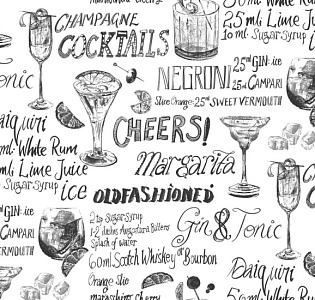 maraschino cherry
CHAMPAGNE
COCKTAILS
White Rum
25 ml Lime Juice
10 ml Sugar Syrup ice
NEGRONI
25ml GIN ice
25ml CAMPARI
Slice Orange 25ml SWEET VERMOUTH
Tonic
CHEERS!
Daiquiri
ml White Rum
ml Lime Juice
Sugar Syrup ice
Margarita
OLDFASHIONED
GIN ice
CAMPARI
VERMOUTH
2 tsp Sugar Syrup
1-2 dashes Angostura Bitters
Splash of water
60ml Scotch Whiskey or Bourbon
Orange Slice
maraschino cherry
Gin & Tonic
Daiquiri
50ml White Rum